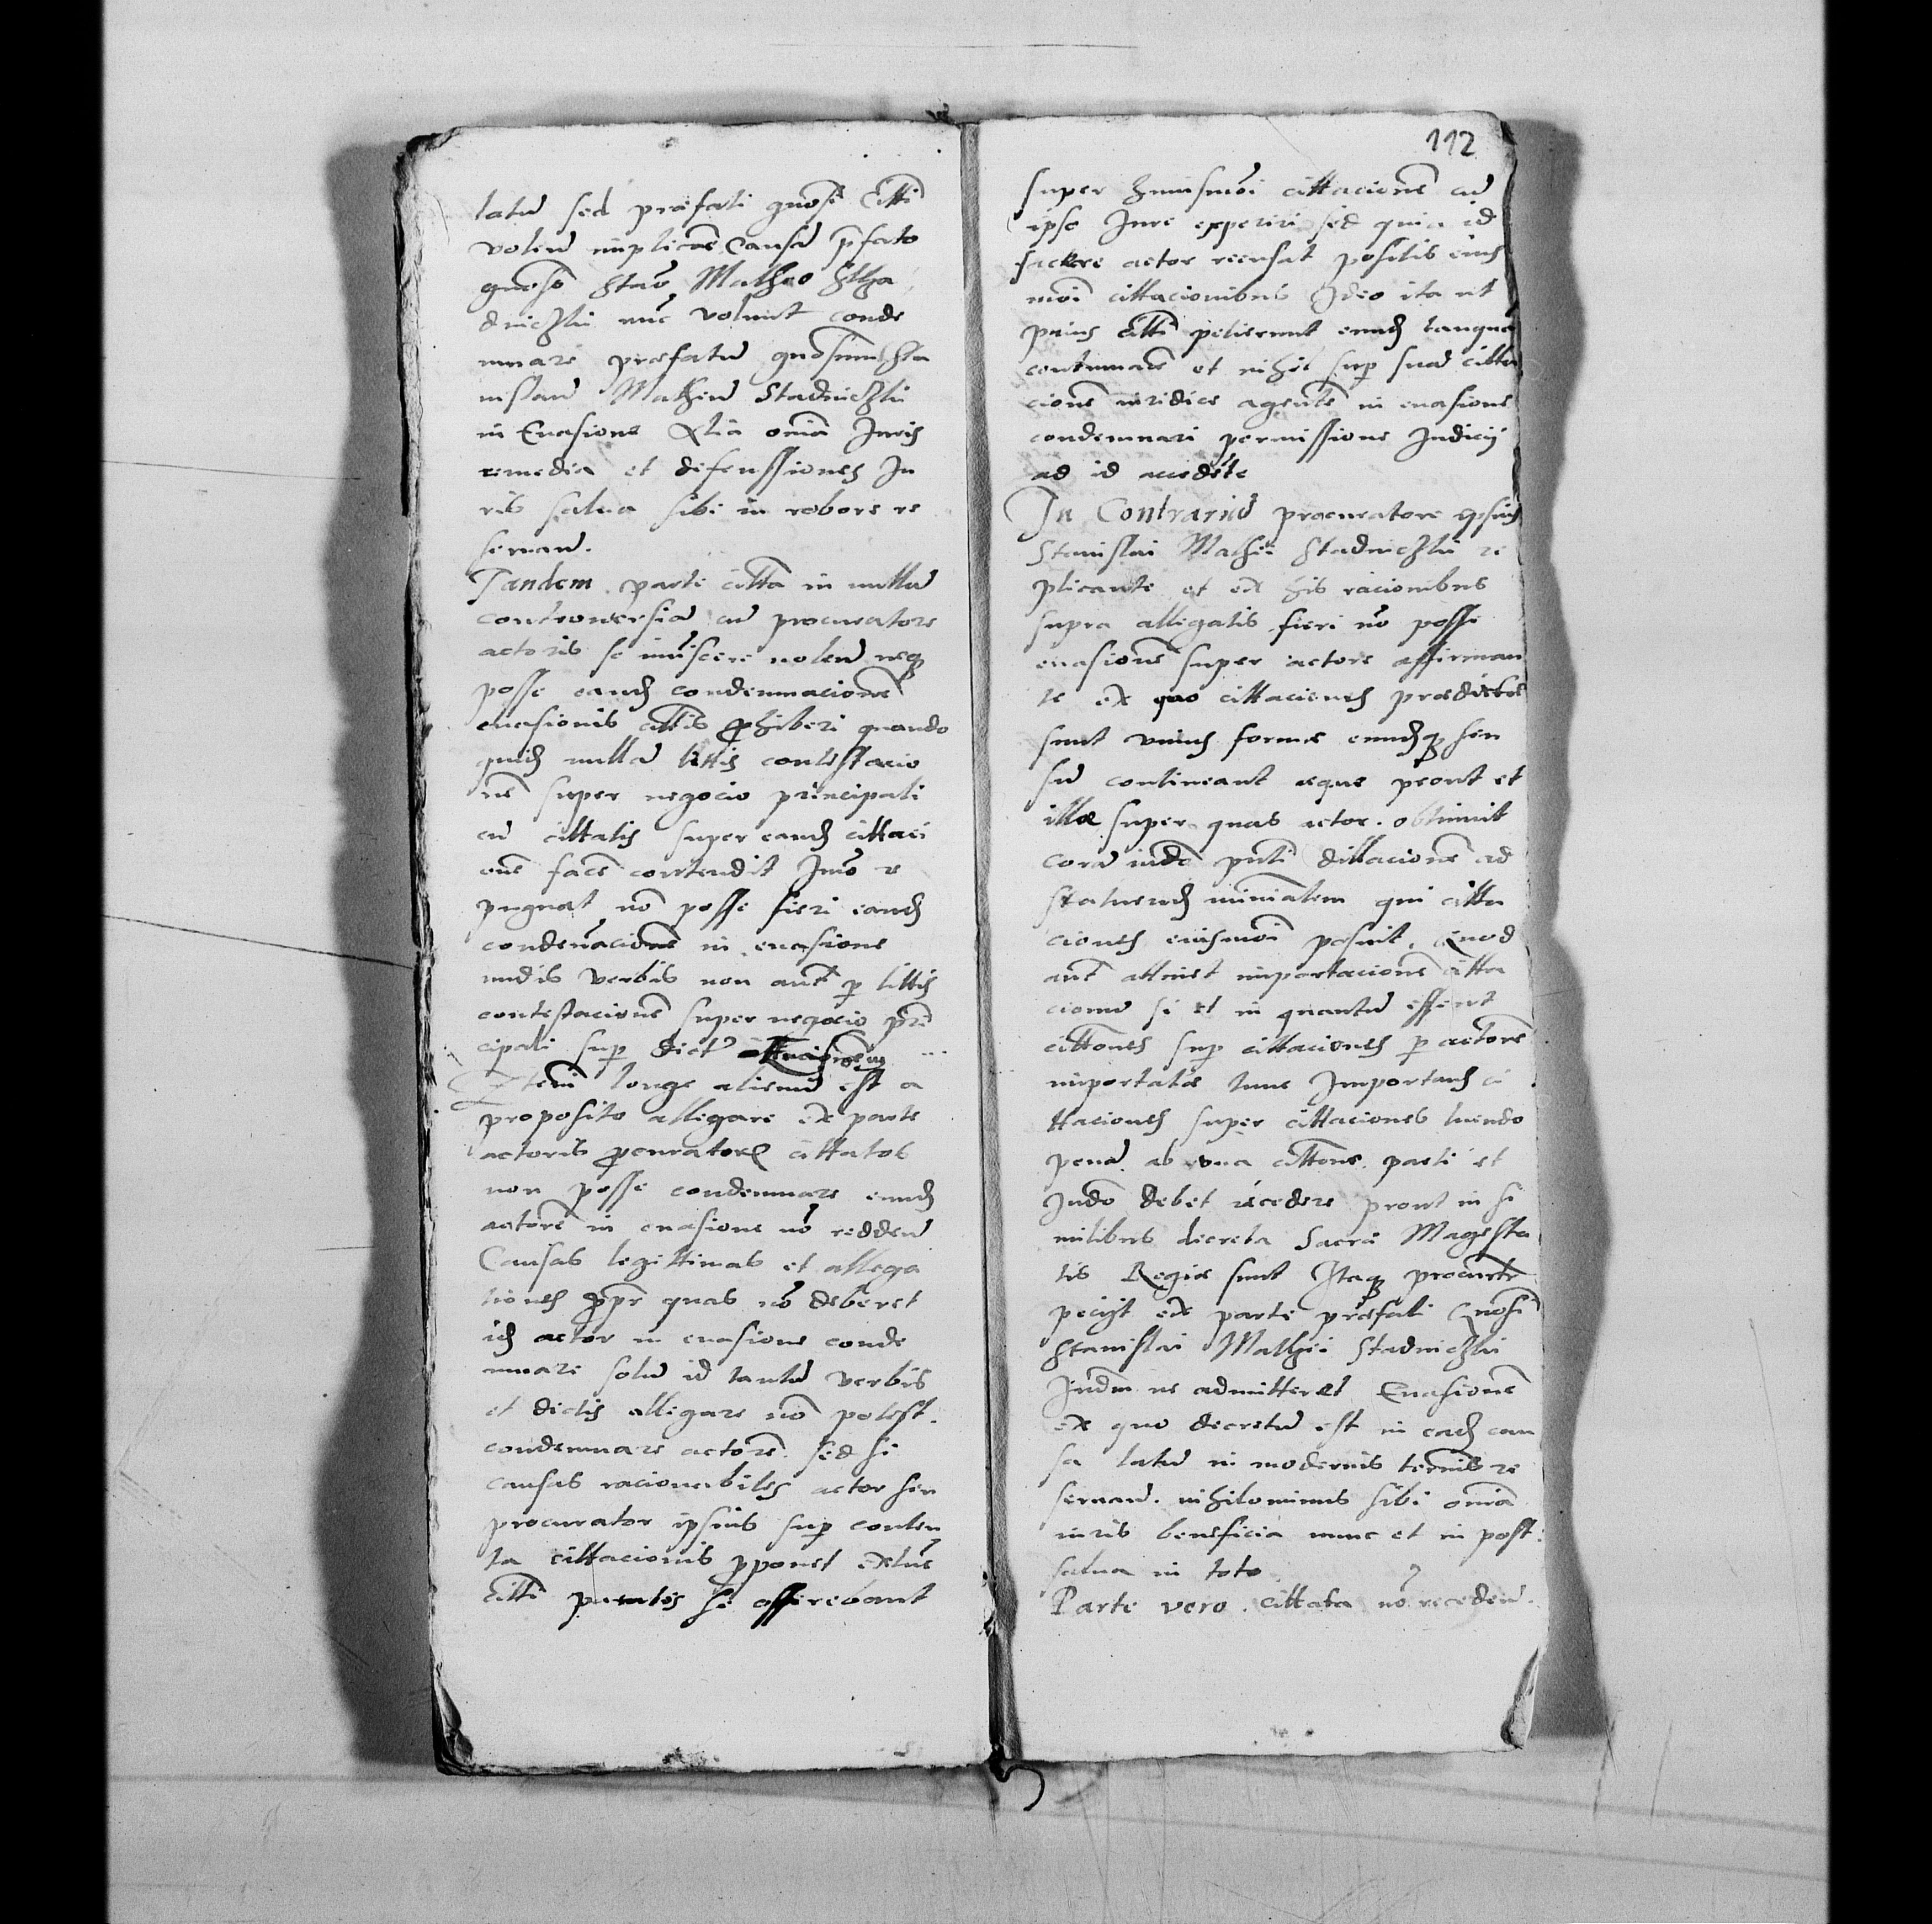 latu sed præfati gnosi Citti
volen implicare Causa pfato
gnoso Stao Matheo Stha
dniczki nuc volunt conde
mnare præfatu gnosum Sta
nislau Matheu Stadniczki
in Euasione Alia omia Iuris
remedia et defenssiones Iu
ris salua sibi in robore re
seruan.
Tandem parte citta in nulla
controuersia cu procuratore
actoris se imiscere nolen neq
posse eand condemnacione
euasionis cittis phiberi quando
quid nulla littis contestacio
ne super negocio principali
cu cittatis super eand cittaci
one face contendit Imo re
pugnat no posse fieri eand
condenacione in euasione
nudis verbis non aut p littis
contestacione super negocio prin
cipali sup dict cittacionem
Etem longe alienu est a
proposito allegare ex parte
actoris pcuratore cittatos
non posse condemnare eund
actore in euasione no redden
Causas legittimas et allega
tiones ppr quas no deberet
id actor in euasione conde
mnari solu id tantu verbis
et dictis allegare no potest.
condemnare actore. sed si
causas racionabiles actor seu
procurator ipsius sup conten
ta cittacionis pponet extuc
Citti paratos se offerebant
112
super huiusmoi cittacione cu
ipso Iure experiri sed quia id
facere actor recusat positis eius
moi cittacionibus Ideo ita ut
prius Citti petierunt eund tanqua
contumace et nihil sup sua citta
cione iuridice agente in euasione
condemnari permissione Iudicij
ad id accedete
In Contrariu procuratore ipsius
Stanislai Mathei Stadniczki re
plicante et ex his racionibus
supra allegatis fieri no posse
euasione super actore affirman
te ex quo cittaciones prædictæ
sunt vnius formæ eundq sen
su contineant æque prout et
illæ super quas actor. obtinuit
cora iudo pnti dillacione ad
statuend ministerialem qui citta
ciones eiusmoi posuit. Quod
aut attinet importacione citta
cionu si et in quantu essent
cittones sup cittaciones p actore
importatæ tunc Importans ci
ttaciones super cittaciones luendo
pena ab vna cittone parti et
Iudo debet recedere prout in si
milibus decreta Sacræ Magesta
tis Regiæ sunt Itaq procurtr
pecijt ex parte præfati Gnosi
Stanislai Mathei Stadniczki
Iudm ne admitteret Euasione
ex quo decretu est in ead cau
sa latu in modernis ternis re
seruan. nihilominus sibi omia
iuris beneficia nunc et in post:
salua in toto
Parte vero. cittata no receden.